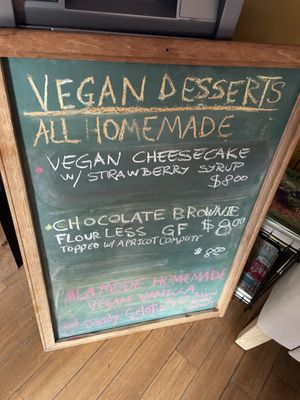 VEGAN DESSERTS
ALL HOMEMADE
VEGAN CHEESECAKE
W/ STRAWBERRY SYRUP
$8.00
CHOCOLATE BROWNIE
FLOURLESS GF $8.00
TOPPED W/ APRICOT COMPOTE
$8.00
ALA MODE HOMEMADE
VEGAN VANILLA
Dandy Gelato